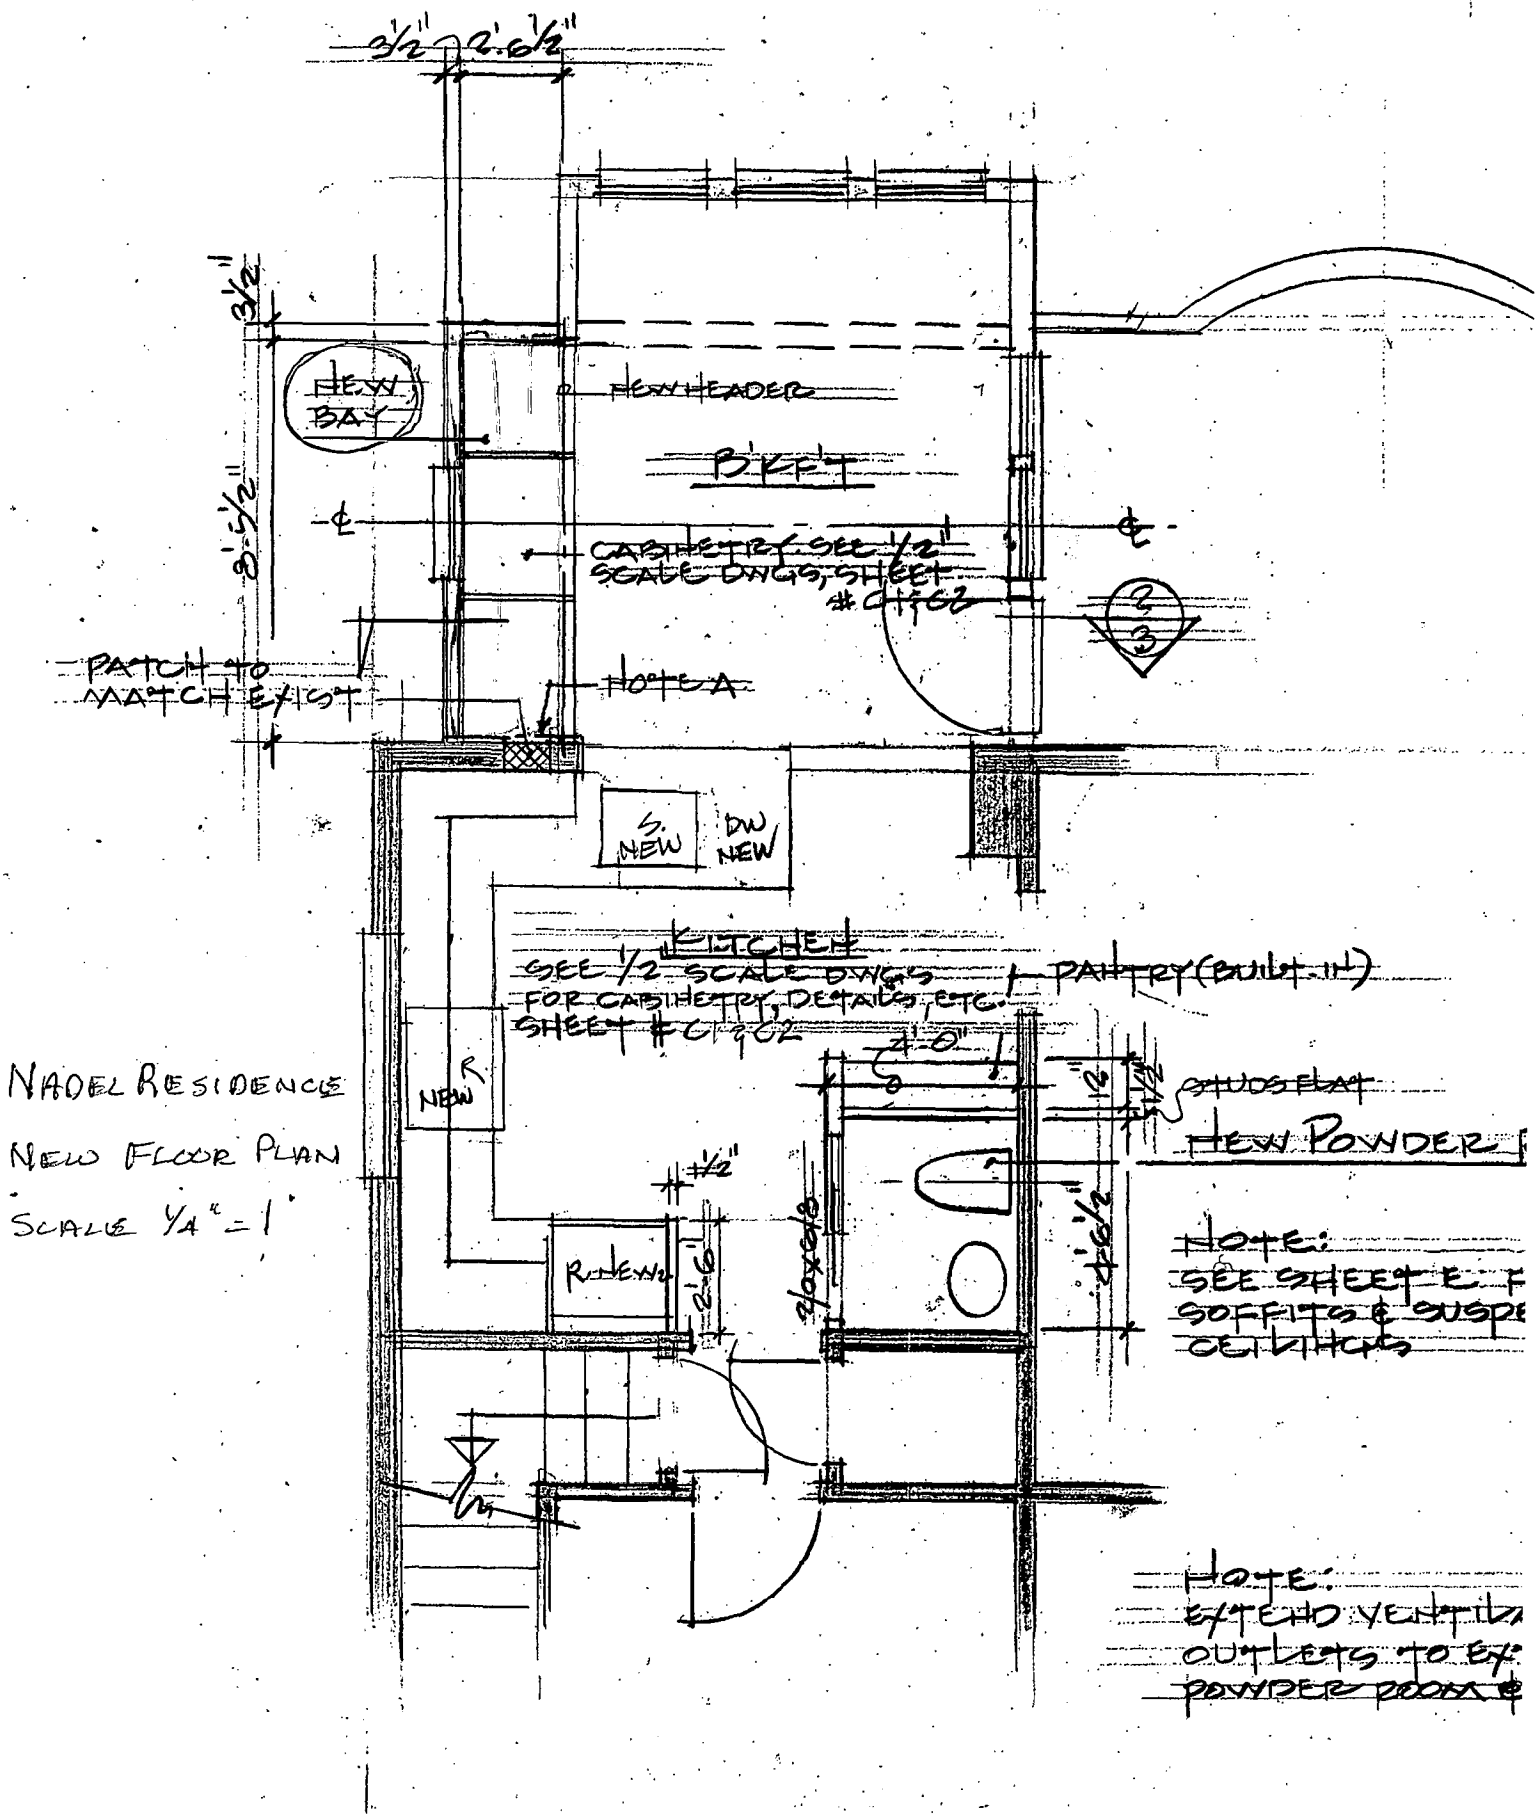 3½" 2'-6½"
3½"
NEW
BAY
NEW HEADER
B'KF'T
8'-5½"
℄ ℄
CABINETRY. SEE 1/2"
SCALE DWGS, SHEET
# C1 & C2
2
3
PATCH TO
MATCH EXIST
NOTE A
S.
NEW
DW
NEW
KITCHEN
SEE 1/2" SCALE DWGS
FOR CABINETRY, DETAILS, ETC.
SHEET # C1 & C2
PANTRY (BUILT-IN)
4'-0"
12"
STUDS FLAT
R
NEW
NADEL RESIDENCE
NEW FLOOR PLAN
SCALE 1/4" = 1'
NEW POWDER
2/0x6/8
4'6½"
R. NEW
2'-6"
NOTE:
SEE SHEET E. F
SOFFITS & SUSPE
CEILINGS
NOTE:
EXTEND VENTILA
OUTLETS TO EX
POWDER ROOM &